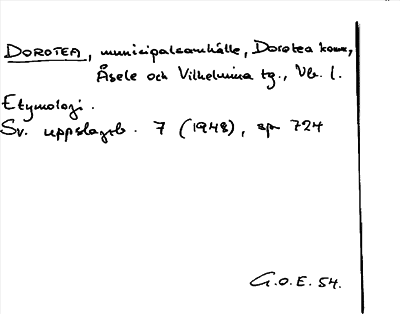 DOROTEA, municipalsamhälle, Dorotea komm,
Åsele och Vilhelmina tg., Vb. l.
Etymologi.
Sv. uppslagsb. 7 (1948), sp 724
G.O.E. 54.